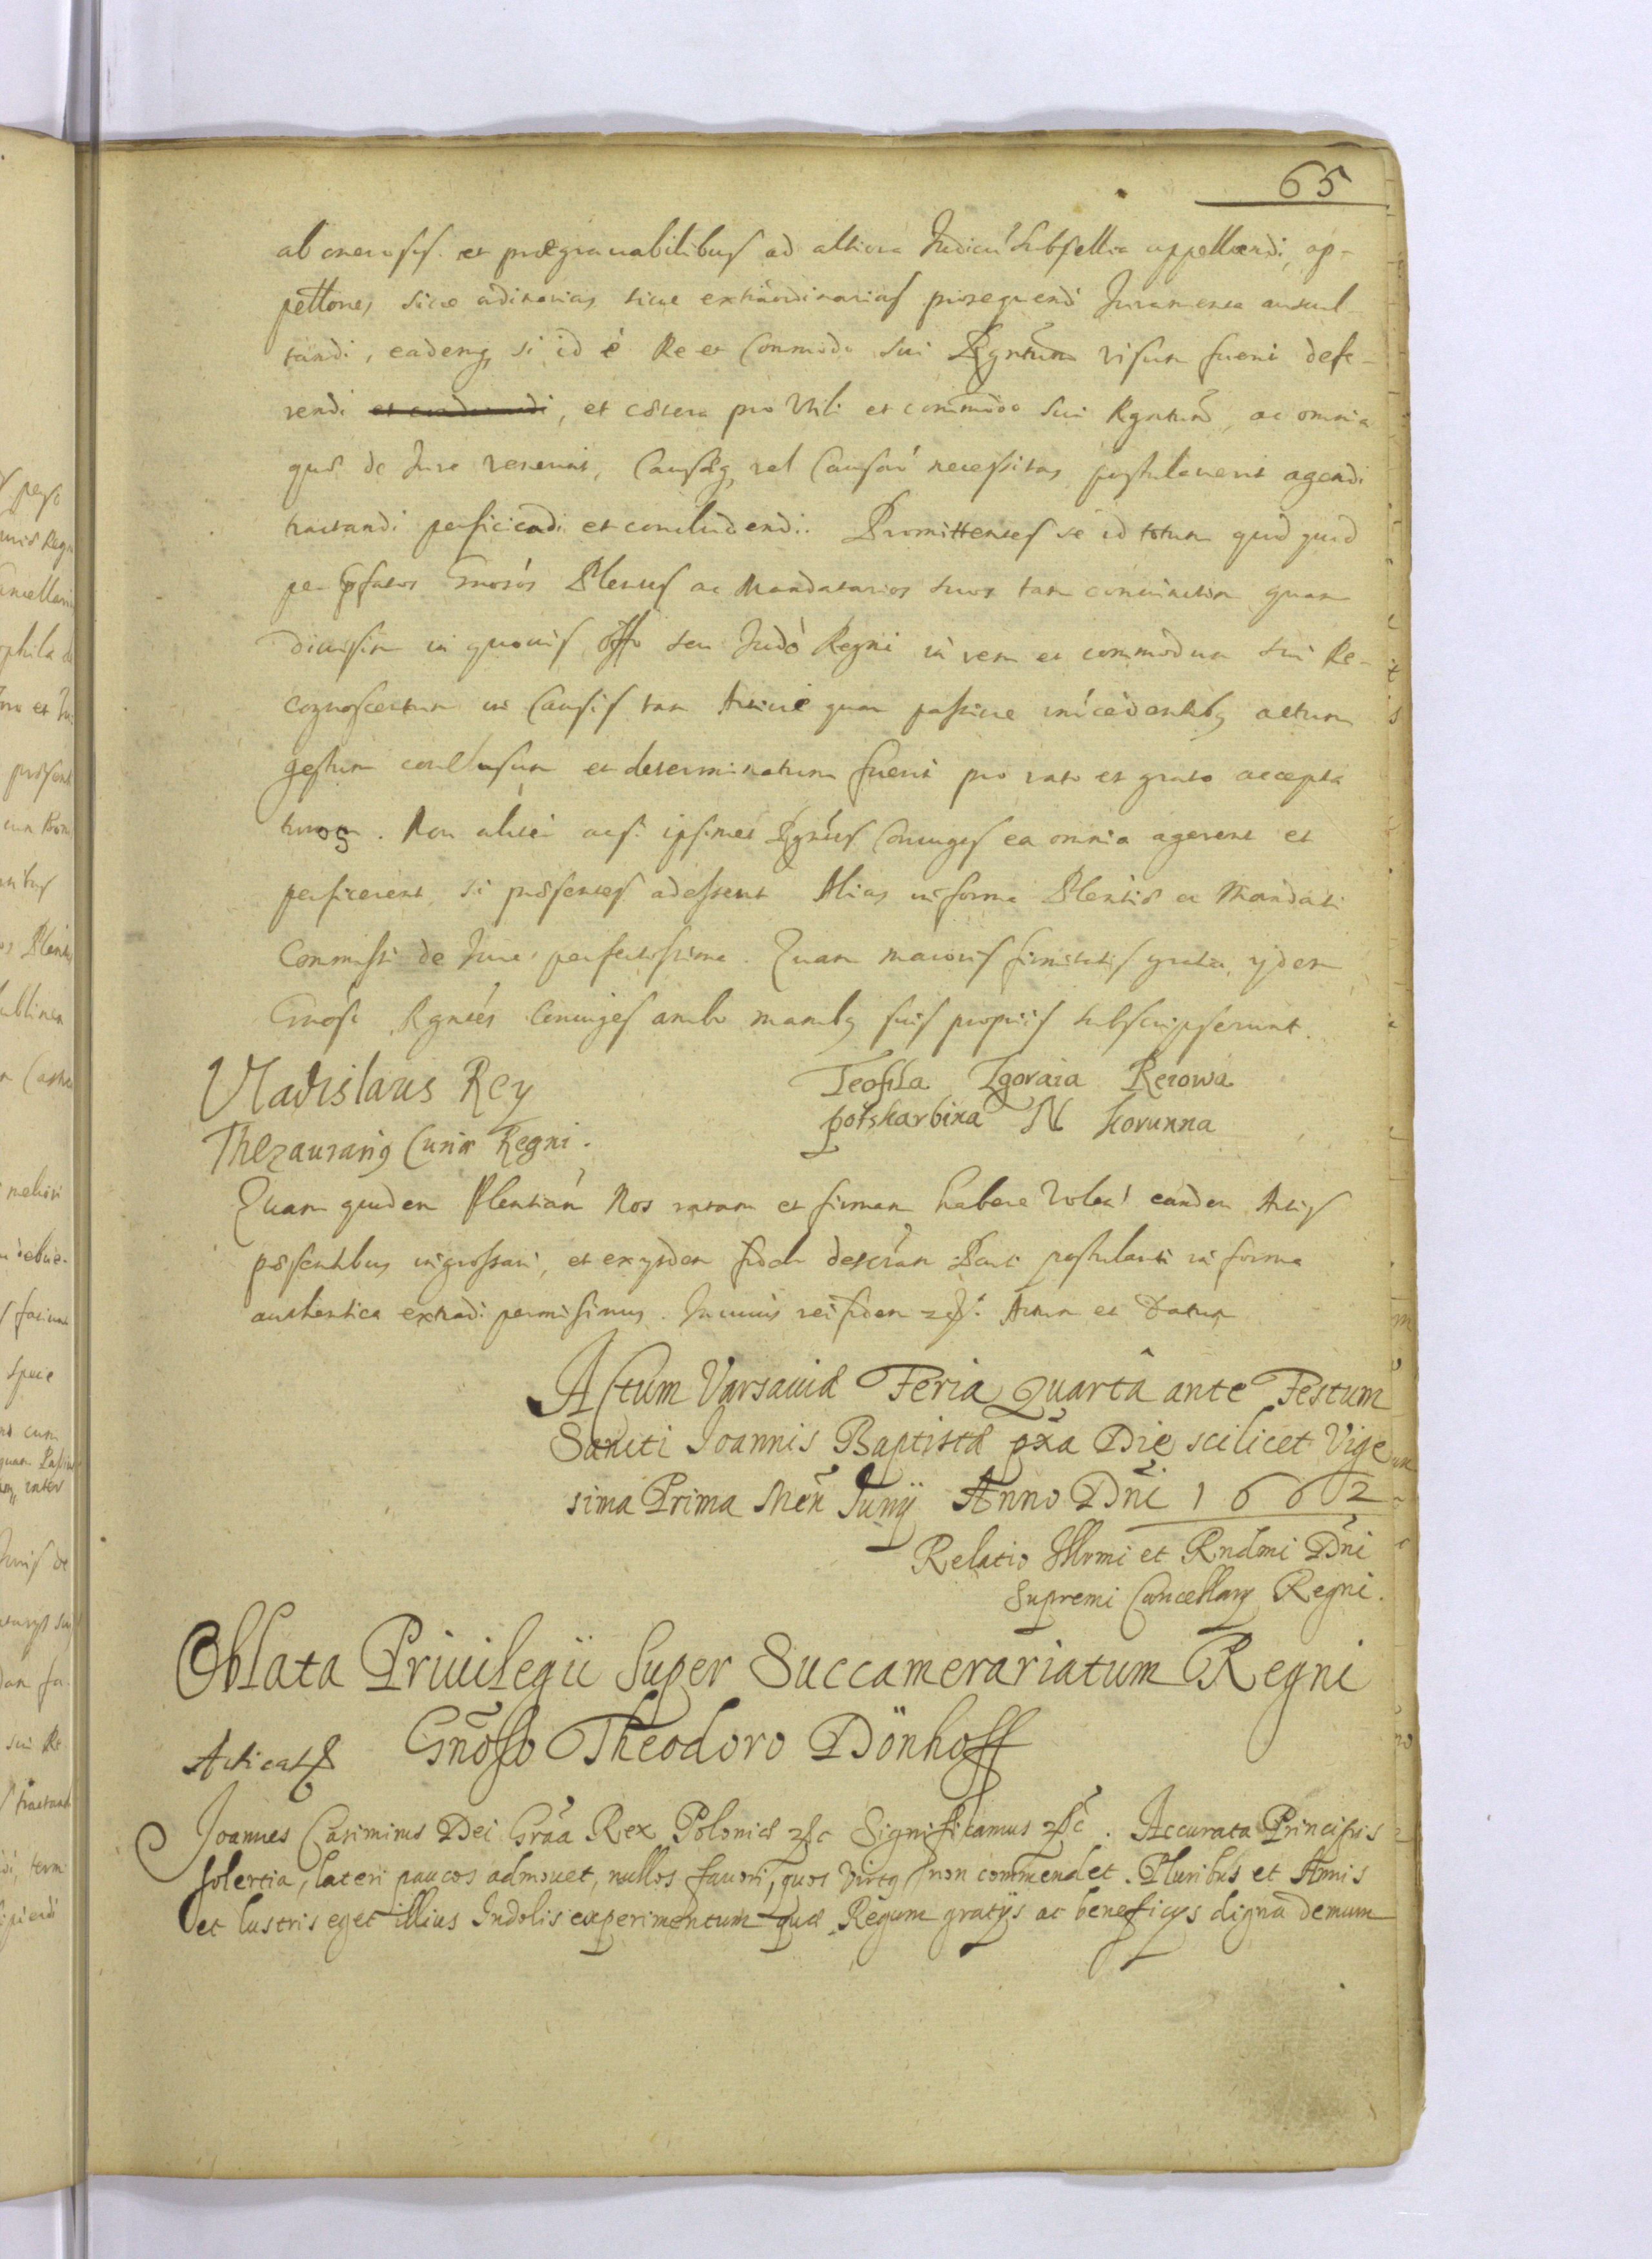 65
ab onerosis et prægrauabilibus ad altiora Judicii Subsellia appellandi, ap-
pellones siue ordinarias siue extraordinarias prosequendi Juramenta auscul-
tandi, eademq, si id è Re et Commodo sui Rgntium visum fuerit defe-
rendi et cætera pro Vtili et commodo sui Rgntium, ac omnia
quæ de Jure venerint, Causæq, vel Causarū necessitas postulauerit agendi
tractandi perficiendi et concludendi. Promittentes se id totum quidquid
per Gnosos Plenos ac Mandatarios suos tam coniunctim quam
diuisim in quouis offo seu Judo Regni in rem et commodum sui Re-
cognoscentium in Causis tam Actiue quam passiue actum
gestum conclusum et determinatum fuerit pro rato et grato accepta
turos. Non aliter acsi ipsimet Rgntes Coniuges ea omnia agerent et
perficerent, si præsentes adessent Alias in forma Plentiæ ac Mandati
Commissi de Jure perfectissima. Quam maioris firmitatis gratia, ijdem
Gnosi Rgntes Coniuges ambo manibq suis proprijs subscripserunt.
Vladislaus Rey
Thezaurariq Curiæ Regni.
Teofila Zgoraia Reiowa
potskarbina N korunna
Quam quidem Plentiam Nos ratam et firmam habere Volen' eandem Actis
præsentibus ingrossari, et exijsdem fideli descriptam Parti postulanti in forma
authentica extradi permisimus. In cuius rei fidem Actum et Datum
Actum Varsauiæ Feria Quartâ ante Festum
Sancti Joannis Baptistæ pxa Die scilicet Vige
sima Prima Men Junij Anno Dni 1662
Relatio Illrmi et Rndmi Dni
Supremi Cancellarij Regni.
Oblata Priuilegii Super Succamerariatum Regni
Gnoso Theodoro Dönhoff
Joannes Casimirus Dei Graa Rex Poloniæ Significamus. Accurata Principis
solertia, lateri paucos admouet, nullos fauori, quos virtq non commendet. Pluribus et Annis
et lustris eget illius Indolis experimentum quæ Regum gratijs ac beneficijs digna demum